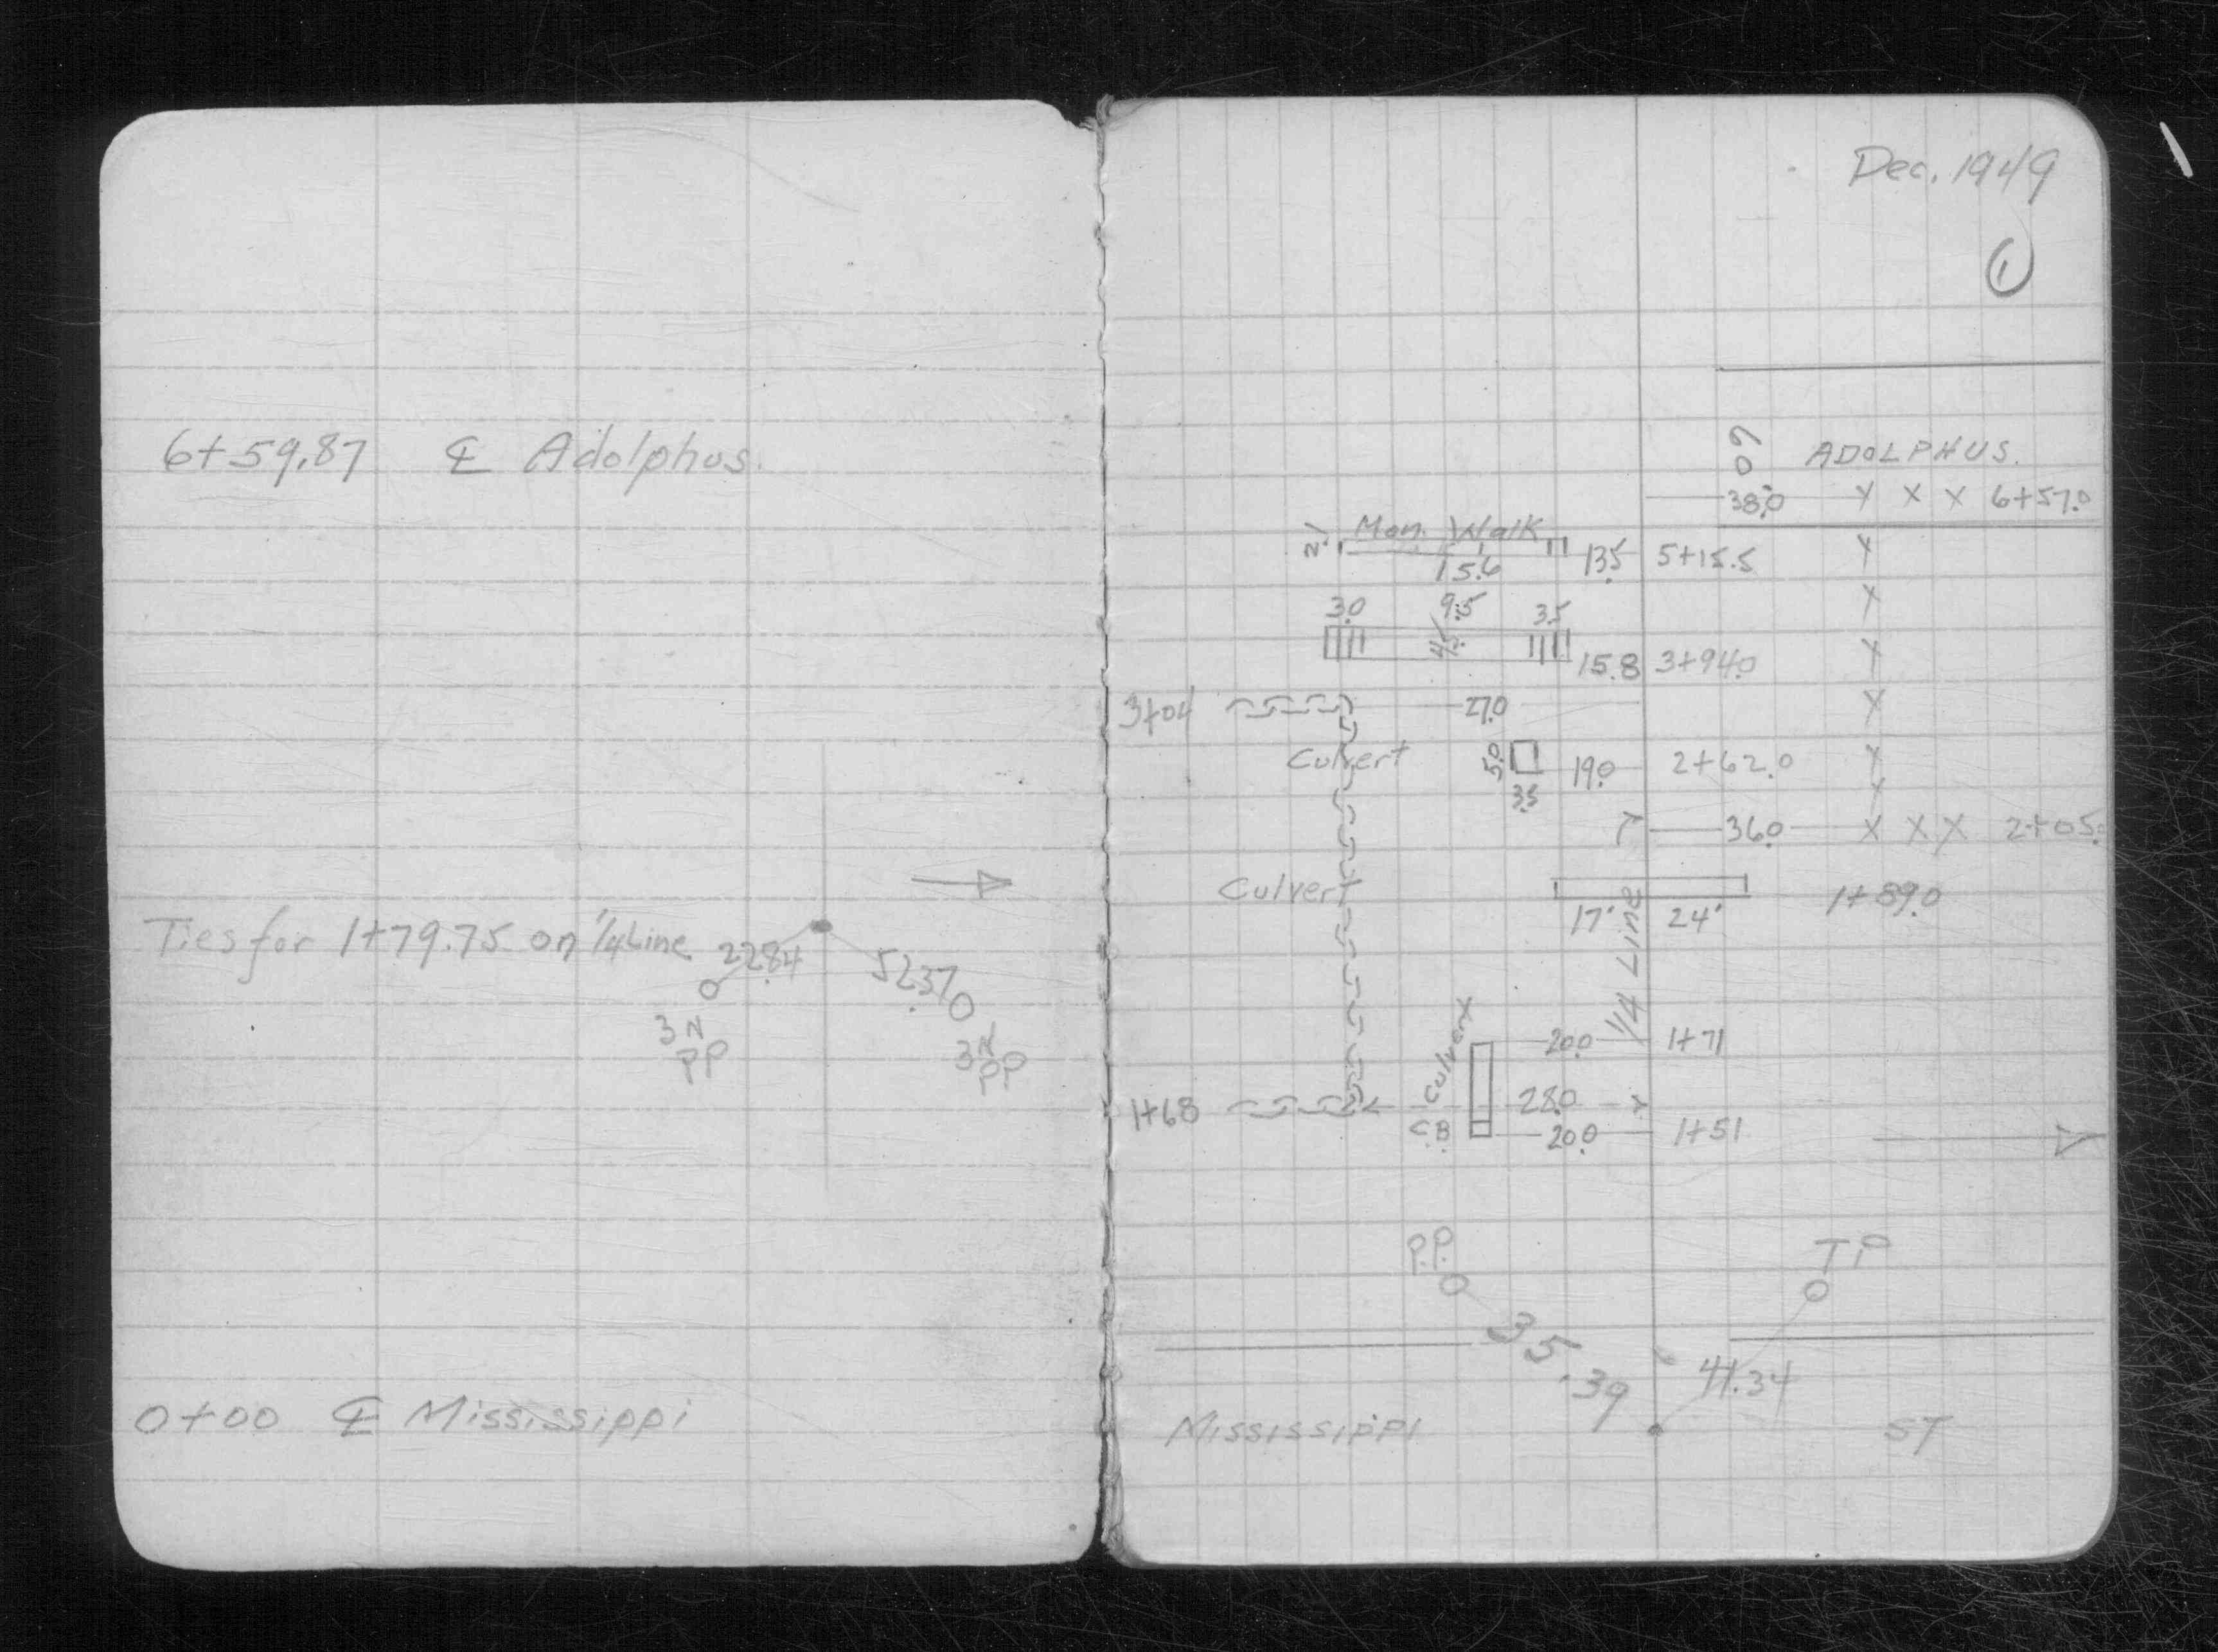 6+59.87 ℄ Adolphus.
Ties for 1+79.75 on 1/4 Line 22.84 52.37
3N
PP
3N
PP
0+00 ℄ Mississippi
Dec. 1949
1
60 ADOLPHUS.
38.0 X X X 6+57.0
2.1 Mon. Walk
15.6 13.5 5+15.5
3.0 9.5 3.5
4.5 15.8 3+94.0
3+04 27.0
Culvert 5.0 19.0 2+62.0
3.5
36.0 X X X 2+05.
Culvert 1+89.0
17' 24'
1/4 Line
Culvert 20.0 1+71
1+68 28.0
C.B 20.0 1+51
P.P. TP
35.39 41.34
Mississippi ST